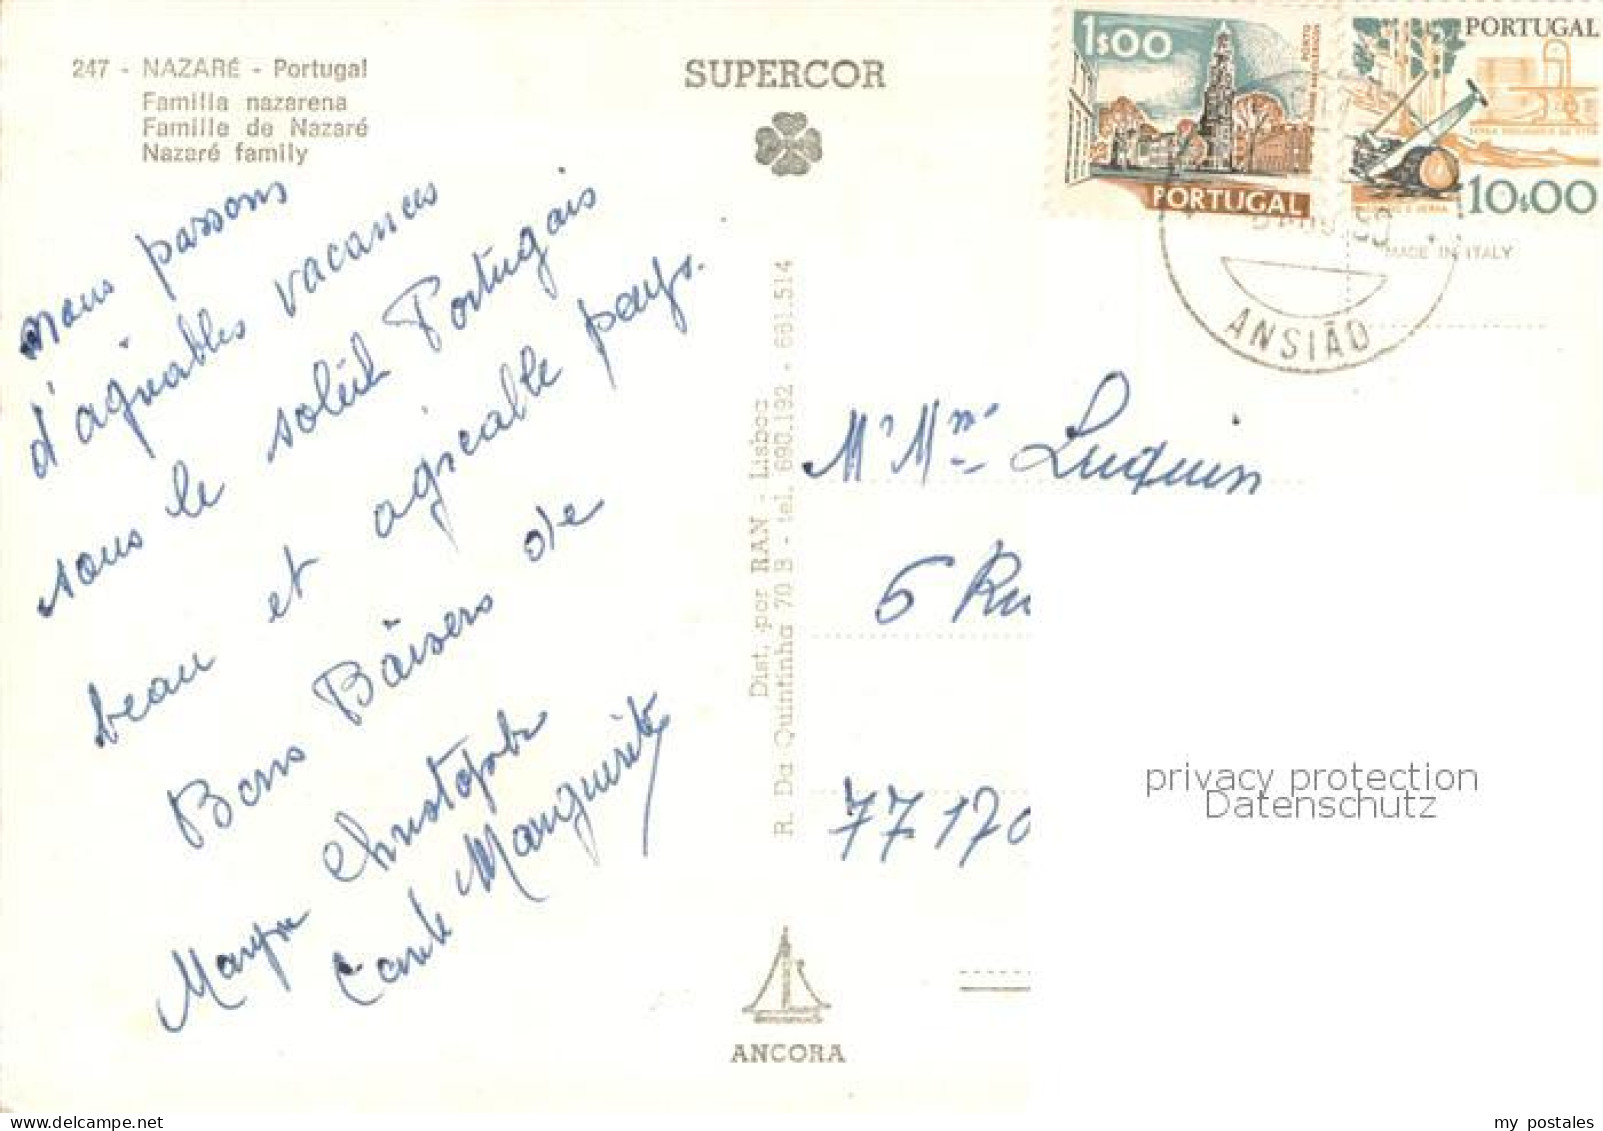 247 - NAZARÉ - Portugal
Família nazarena
Famille de Nazaré
Nazaré family
SUPERCOR
1$00
PORTUGAL
PORTUGAL
10$00
MADE IN ITALY
ANSIÃO
Nous passons
d'agréables vacances
sous le soleil Portugais
beau et agréable pays.
Bons Baisers de
Christophe
Tante Marguerite
Dist. por RAN - Lisboa
R. Da Quintinha 70 B - tel. 690.192 - 661.514
Mr Mme Luquin
6 Ru
77170
privacy protection
Datenschutz
ANCORA
my postales